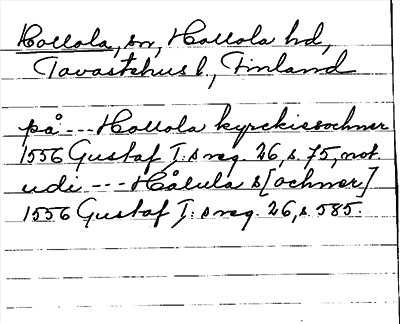 Hollola, sn, Hollola hd,
Tavastehus l, Finland
på --- Hollola kyrckiesochner
1556 Gustaf I:s reg. 26, s. 75, not.
udi --- Hålula s[ochner]
1556 Gustaf I:s reg. 26, s. 585.